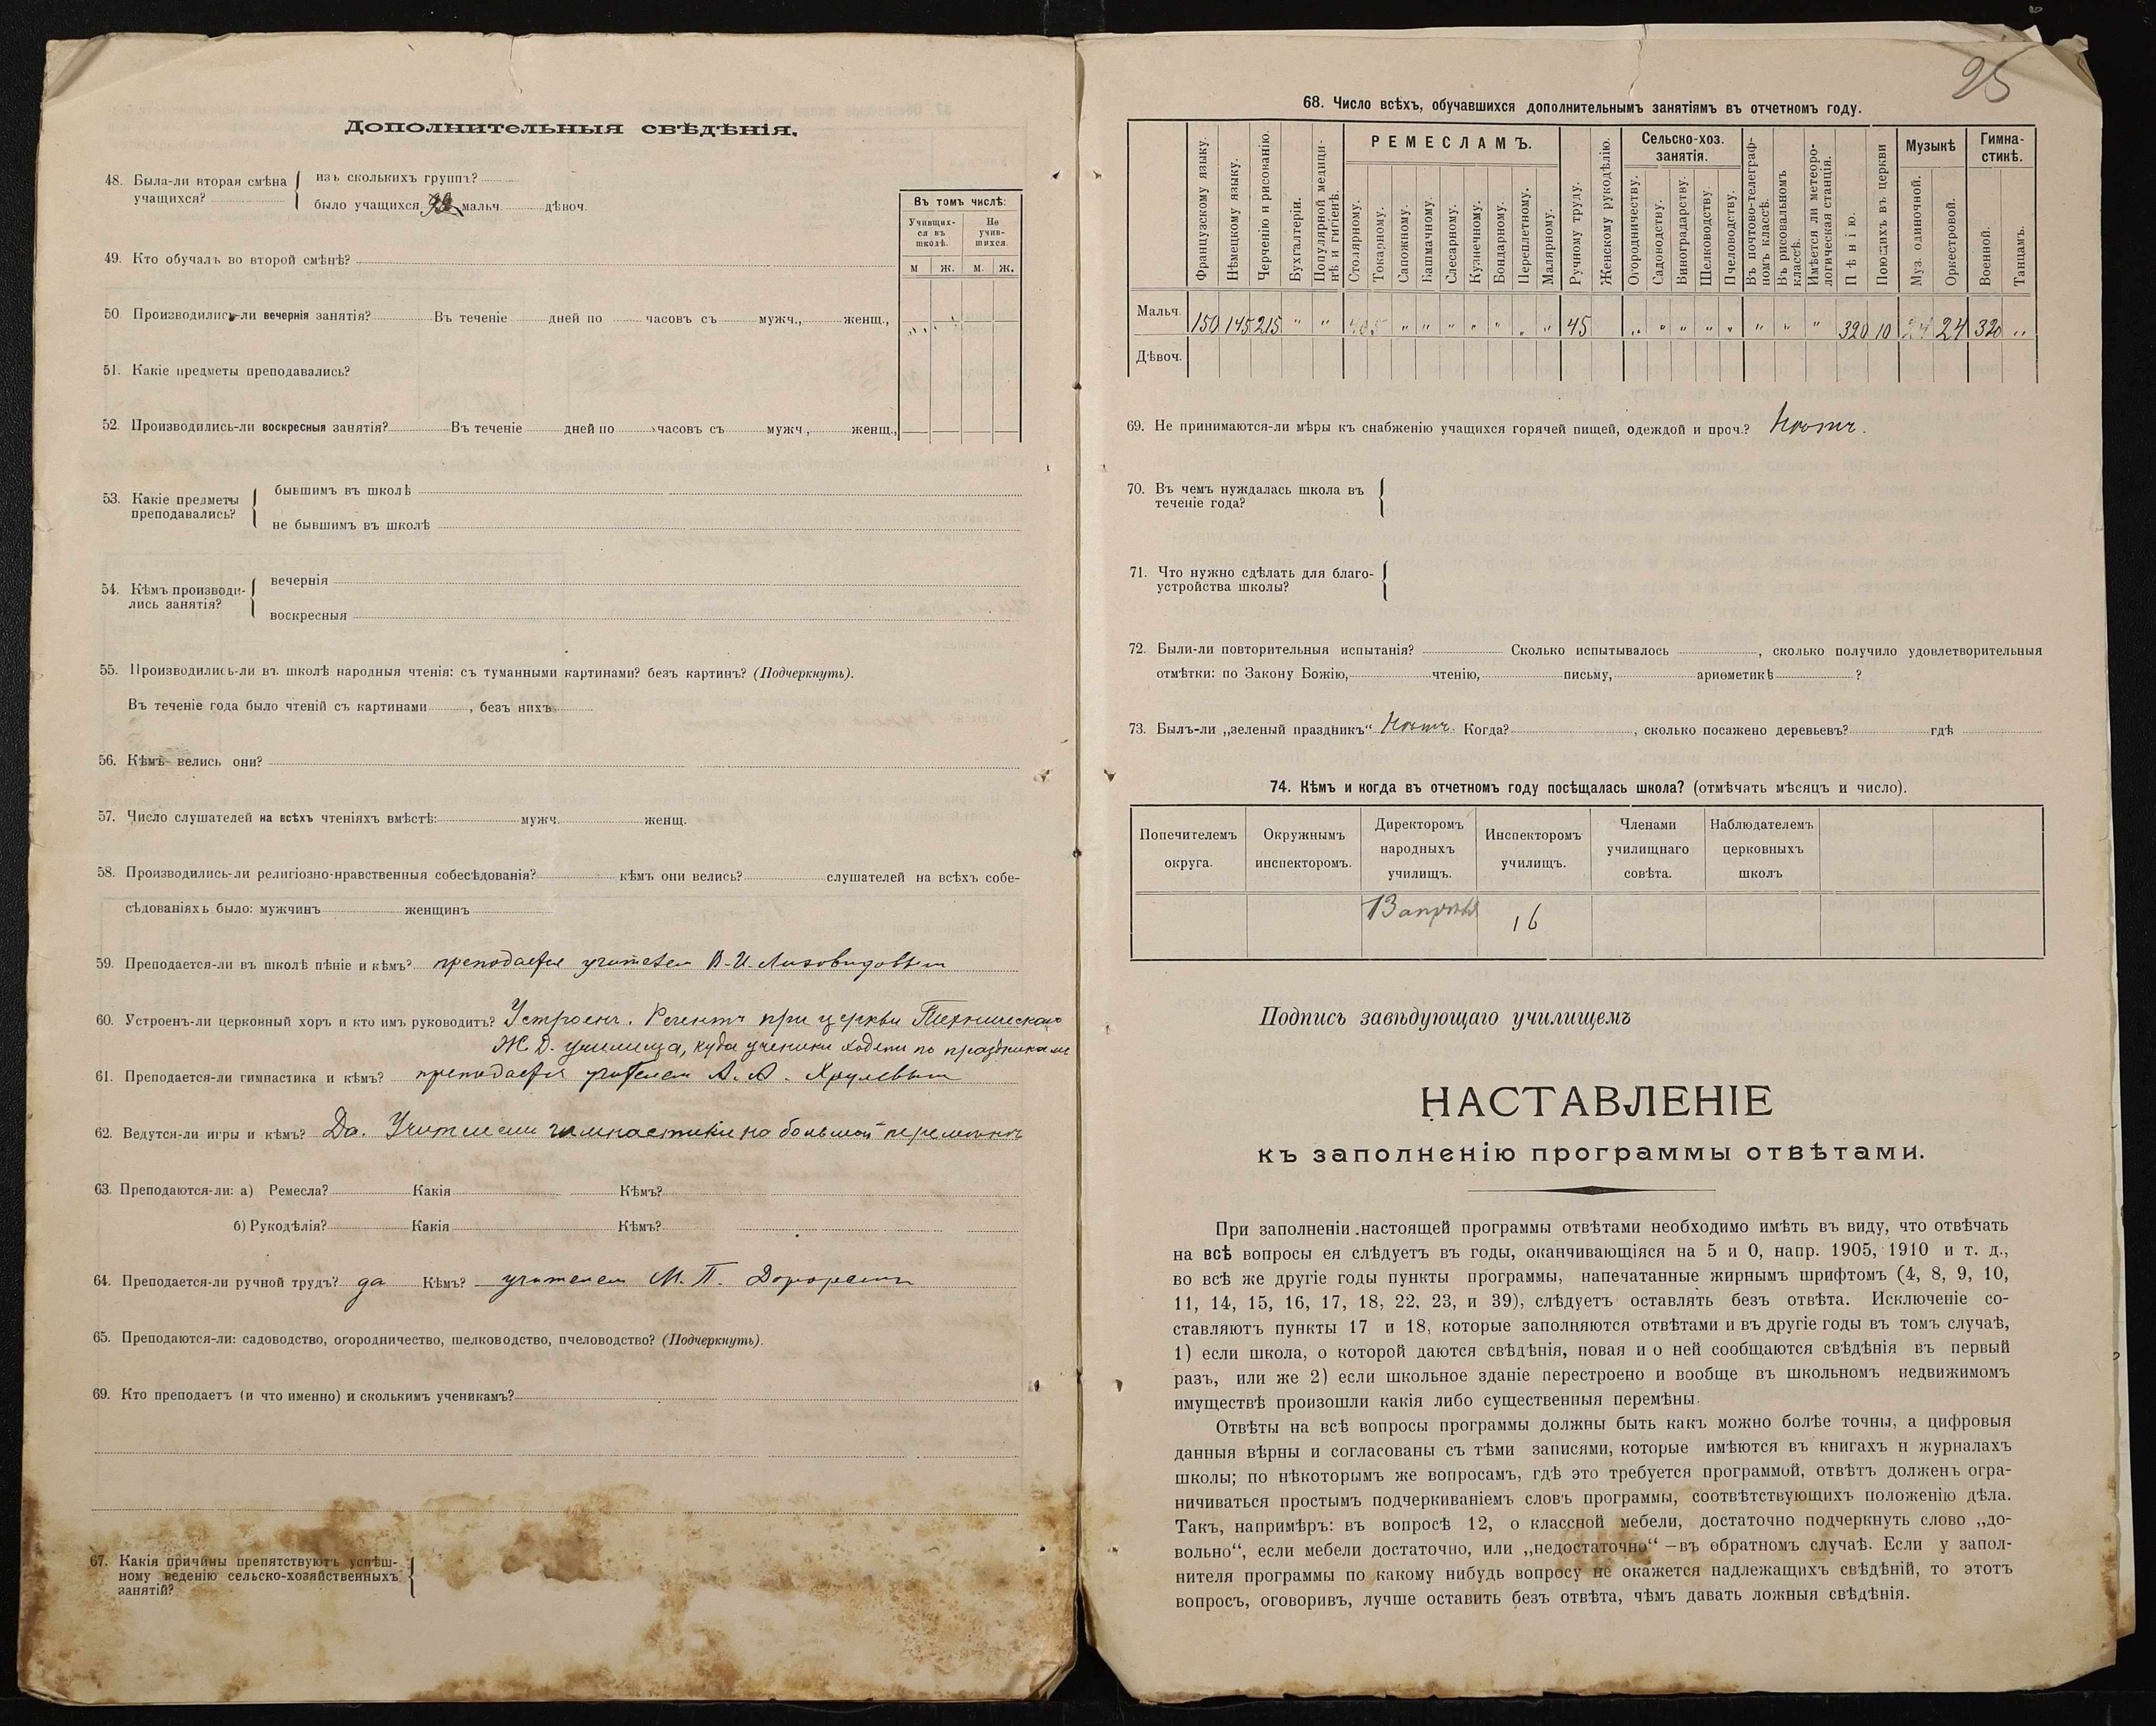 Дополнительныя свѣдѣнія.
48. Была-ли вторая смѣна учащихся?
изъ сколькихъ группъ?
было учащихся мальч. дѣвоч.
Въ томъ числѣ:
Учивших-ся въ школѣ.
Не учив-шихся.
м ж. м. ж.
49. Кто обучалъ во второй смѣнѣ?
50. Производились-ли вечернія занятія? Въ теченіе дней по часовъ съ мужч., женщ.,
51. Какіе предметы преподавались?
52. Производились-ли воскресныя занятія? Въ теченіе дней по часовъ съ мужч., женщ.,
53. Какіе предметы преподавались?
бывшимъ въ школѣ
не бывшимъ въ школѣ
54. Кѣмъ производи-лись занятія?
вечернія
воскресныя
55. Производились-ли въ школѣ народныя чтенія: съ туманными картинами? безъ картинъ? (Подчеркнуть).
Въ теченіе года было чтеній съ картинами , безъ нихъ
56. Кѣмъ велись они?
57. Число слушателей на всѣхъ чтеніяхъ вмѣстѣ: мужч. женщ.
58. Производились-ли религіозно-нравственныя собесѣдованія? кѣмъ они велись? слушателей на всѣхъ собе-
сѣдованіяхъ было: мужчинъ женщинъ
59. Преподается-ли въ школѣ пѣніе и кѣмъ? преподается учителем В. И.
60. Устроенъ-ли церковный хоръ и кто имъ руководитъ? Устроенъ. Регентъ при церкви Техническаго
Ж. Д. училища, куда ученики ходели по праздникам
61. Преподается-ли гимнастика и кѣмъ? преподается учителем А. А. Хрулевым
62. Ведутся-ли игры и кѣмъ? Да. Учителем гимнастики на большой перемѣнѣ
63. Преподаются-ли: а) Ремесла? Какія Кѣмъ?
б) Рукодѣлія? Какія Кѣмъ?
64. Преподается-ли ручной трудъ? да Кѣмъ? учителем М. П.
65. Преподаются-ли: садоводство, огородничество, шелководство, пчеловодство? (Подчеркнуть).
69. Кто преподаетъ (и что именно) и сколькимъ ученикамъ?
67. Какія причины препятствуютъ успѣш-
ному веденію сельско-хозяйственныхъ
занятій?
25
68. Число всѣхъ, обучавшихся дополнительнымъ занятіямъ въ отчетномъ году.
Французскому языку.
Нѣмецкому языку.
Черченію и рисованію.
Бухгалтеріи.
Популярной медици-нѣ и гигіенѣ.
РЕМЕСЛАМЪ.
Столярному.
Токарному.
Сапожному.
Башмачному.
Слесарному.
Кузнечному.
Бондарному.
Переплетному.
Малярному.
Ручному труду.
Женскому рукодѣлію.
Сельско-хоз. занятія.
Огородничеству.
Садоводству.
Виноградарству.
Шелководству.
Пчеловодству.
Въ почтово-телеграф-номъ классѣ.
Въ рисовальномъ классѣ.
Имѣется ли метеоро-логическая станція.
Пѣнію.
Поющихъ въ церкви
Музыкѣ
Муз. одиночной.
Оркестровой.
Гимна-стикѣ.
Военной.
Танцамъ.
Мальч. 150 145 215 " " " " " " " " " 45 " " " " " " " " 320 10 24 24 320 "
Дѣвоч.
69. Не принимаются-ли мѣры къ снабженію учащихся горячей пищей, одеждой и проч.? Нѣтъ.
70. Въ чемъ нуждалась школа въ
теченіе года?
71. Что нужно сдѣлать для благо-
устройства школы?
72. Были-ли повторительныя испытанія? Сколько испытывалось , сколько получило удовлетворительныя
отмѣтки: по Закону Божію, чтенію, письму, ариѳметикѣ ?
73. Былъ-ли „зеленый праздникъ" Нѣтъ. Когда? , сколько посажено деревьевъ? гдѣ
74. Кѣмъ и когда въ отчетномъ году посѣщалась школа? (отмѣчать мѣсяцъ и число).
Попечителемъ округа.
Окружнымъ инспекторомъ.
Директоромъ народныхъ училищъ.
Инспекторомъ училищъ.
Членами училищнаго совѣта.
Наблюдателемъ церковныхъ школъ
13 апрѣля
16
Подпись завѣдующаго училищемъ
НАСТАВЛЕНІЕ
къ заполненію программы отвѣтами.
При заполненіи настоящей программы отвѣтами необходимо имѣть въ виду, что отвѣчать
на всѣ вопросы ея слѣдуетъ въ годы, оканчивающіяся на 5 и 0, напр. 1905, 1910 и т. д.,
во всѣ же другіе годы пункты программы, напечатанные жирнымъ шрифтомъ (4, 8, 9, 10,
11, 14, 15, 16, 17, 18, 22, 23, и 39), слѣдуетъ оставлять безъ отвѣта. Исключеніе со-
ставляютъ пункты 17 и 18, которые заполняются отвѣтами и въ другіе годы въ томъ случаѣ,
1) если школа, о которой даются свѣдѣнія, новая и о ней сообщаются свѣдѣнія въ первый
разъ, или же 2) если школьное зданіе перестроено и вообще въ школьномъ недвижимомъ
имуществѣ произошли какія либо существенныя перемѣны.
Отвѣты на всѣ вопросы программы должны быть какъ можно болѣе точны, а цифровыя
данныя вѣрны и согласованы съ тѣми записями, которые имѣются въ книгахъ н журналахъ
школы; по нѣкоторымъ же вопросамъ, гдѣ это требуется программой, отвѣтъ долженъ огра-
ничиваться простымъ подчеркиваніемъ словъ программы, соотвѣтствующихъ положенію дѣла.
Такъ, напримѣръ: въ вопросѣ 12, о классной мебели, достаточно подчеркнуть слово „до-
вольно", если мебели достаточно, или „недостаточно" —въ обратномъ случаѣ. Если у запол-
нителя программы по какому нибудь вопросу не окажется надлежащихъ свѣдѣній, то этотъ
вопросъ, оговоривъ, лучше оставить безъ отвѣта, чѣмъ давать ложныя свѣдѣнія.